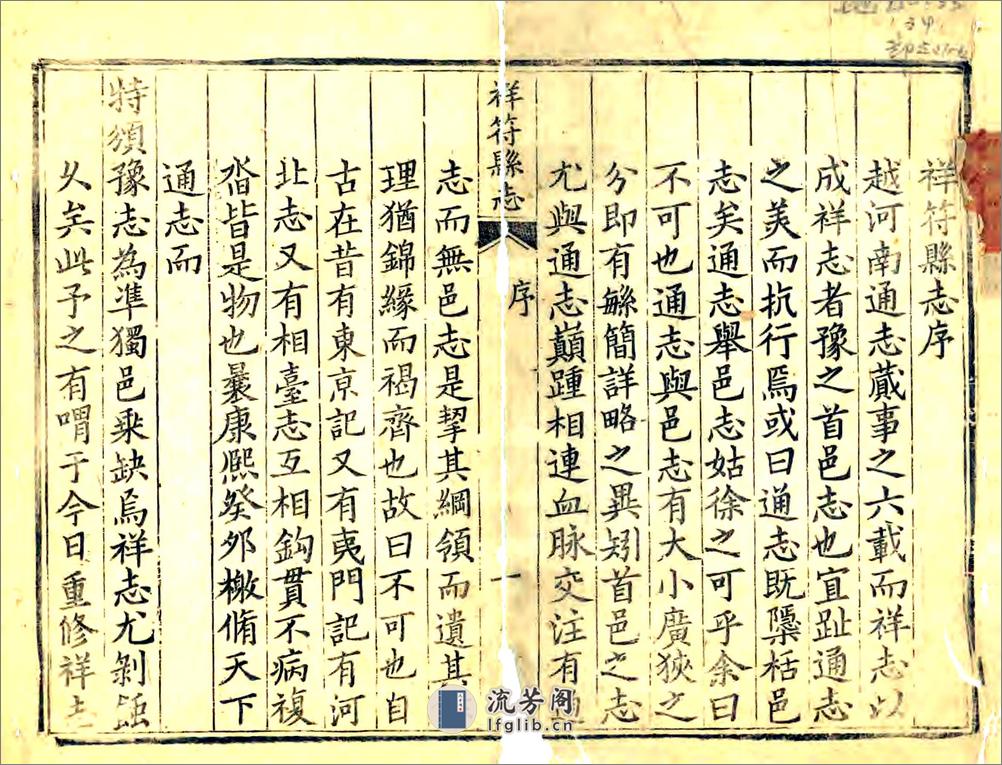 祥符縣志序
越河南通志蕆事之六載而祥志以
成祥志者豫之首邑志也宜趾通志
之美而抗行焉或曰通志既櫽栝邑
志矣通志舉邑志姑徐之可乎余曰
不可也通志與邑志有大小廣狹之
分即有緐簡詳略之異矧首邑之志
尤與通志巔踵相連血脉交注有
祥符縣志
序
一
志而無邑志是挈其綱領而遺其
理猶錦緣而褐齊也故曰不可也自
古在昔有東京記又有夷門記有河
北志又有相臺志互相鈎貫不病複
沓皆是物也曩康熙癸夘檄脩天下
通志而
特頒豫志為准獨邑乘缺焉祥志尤剝蝕
久矣此予之有喟于今日重修祥志
流芳阁
lfglib.cn